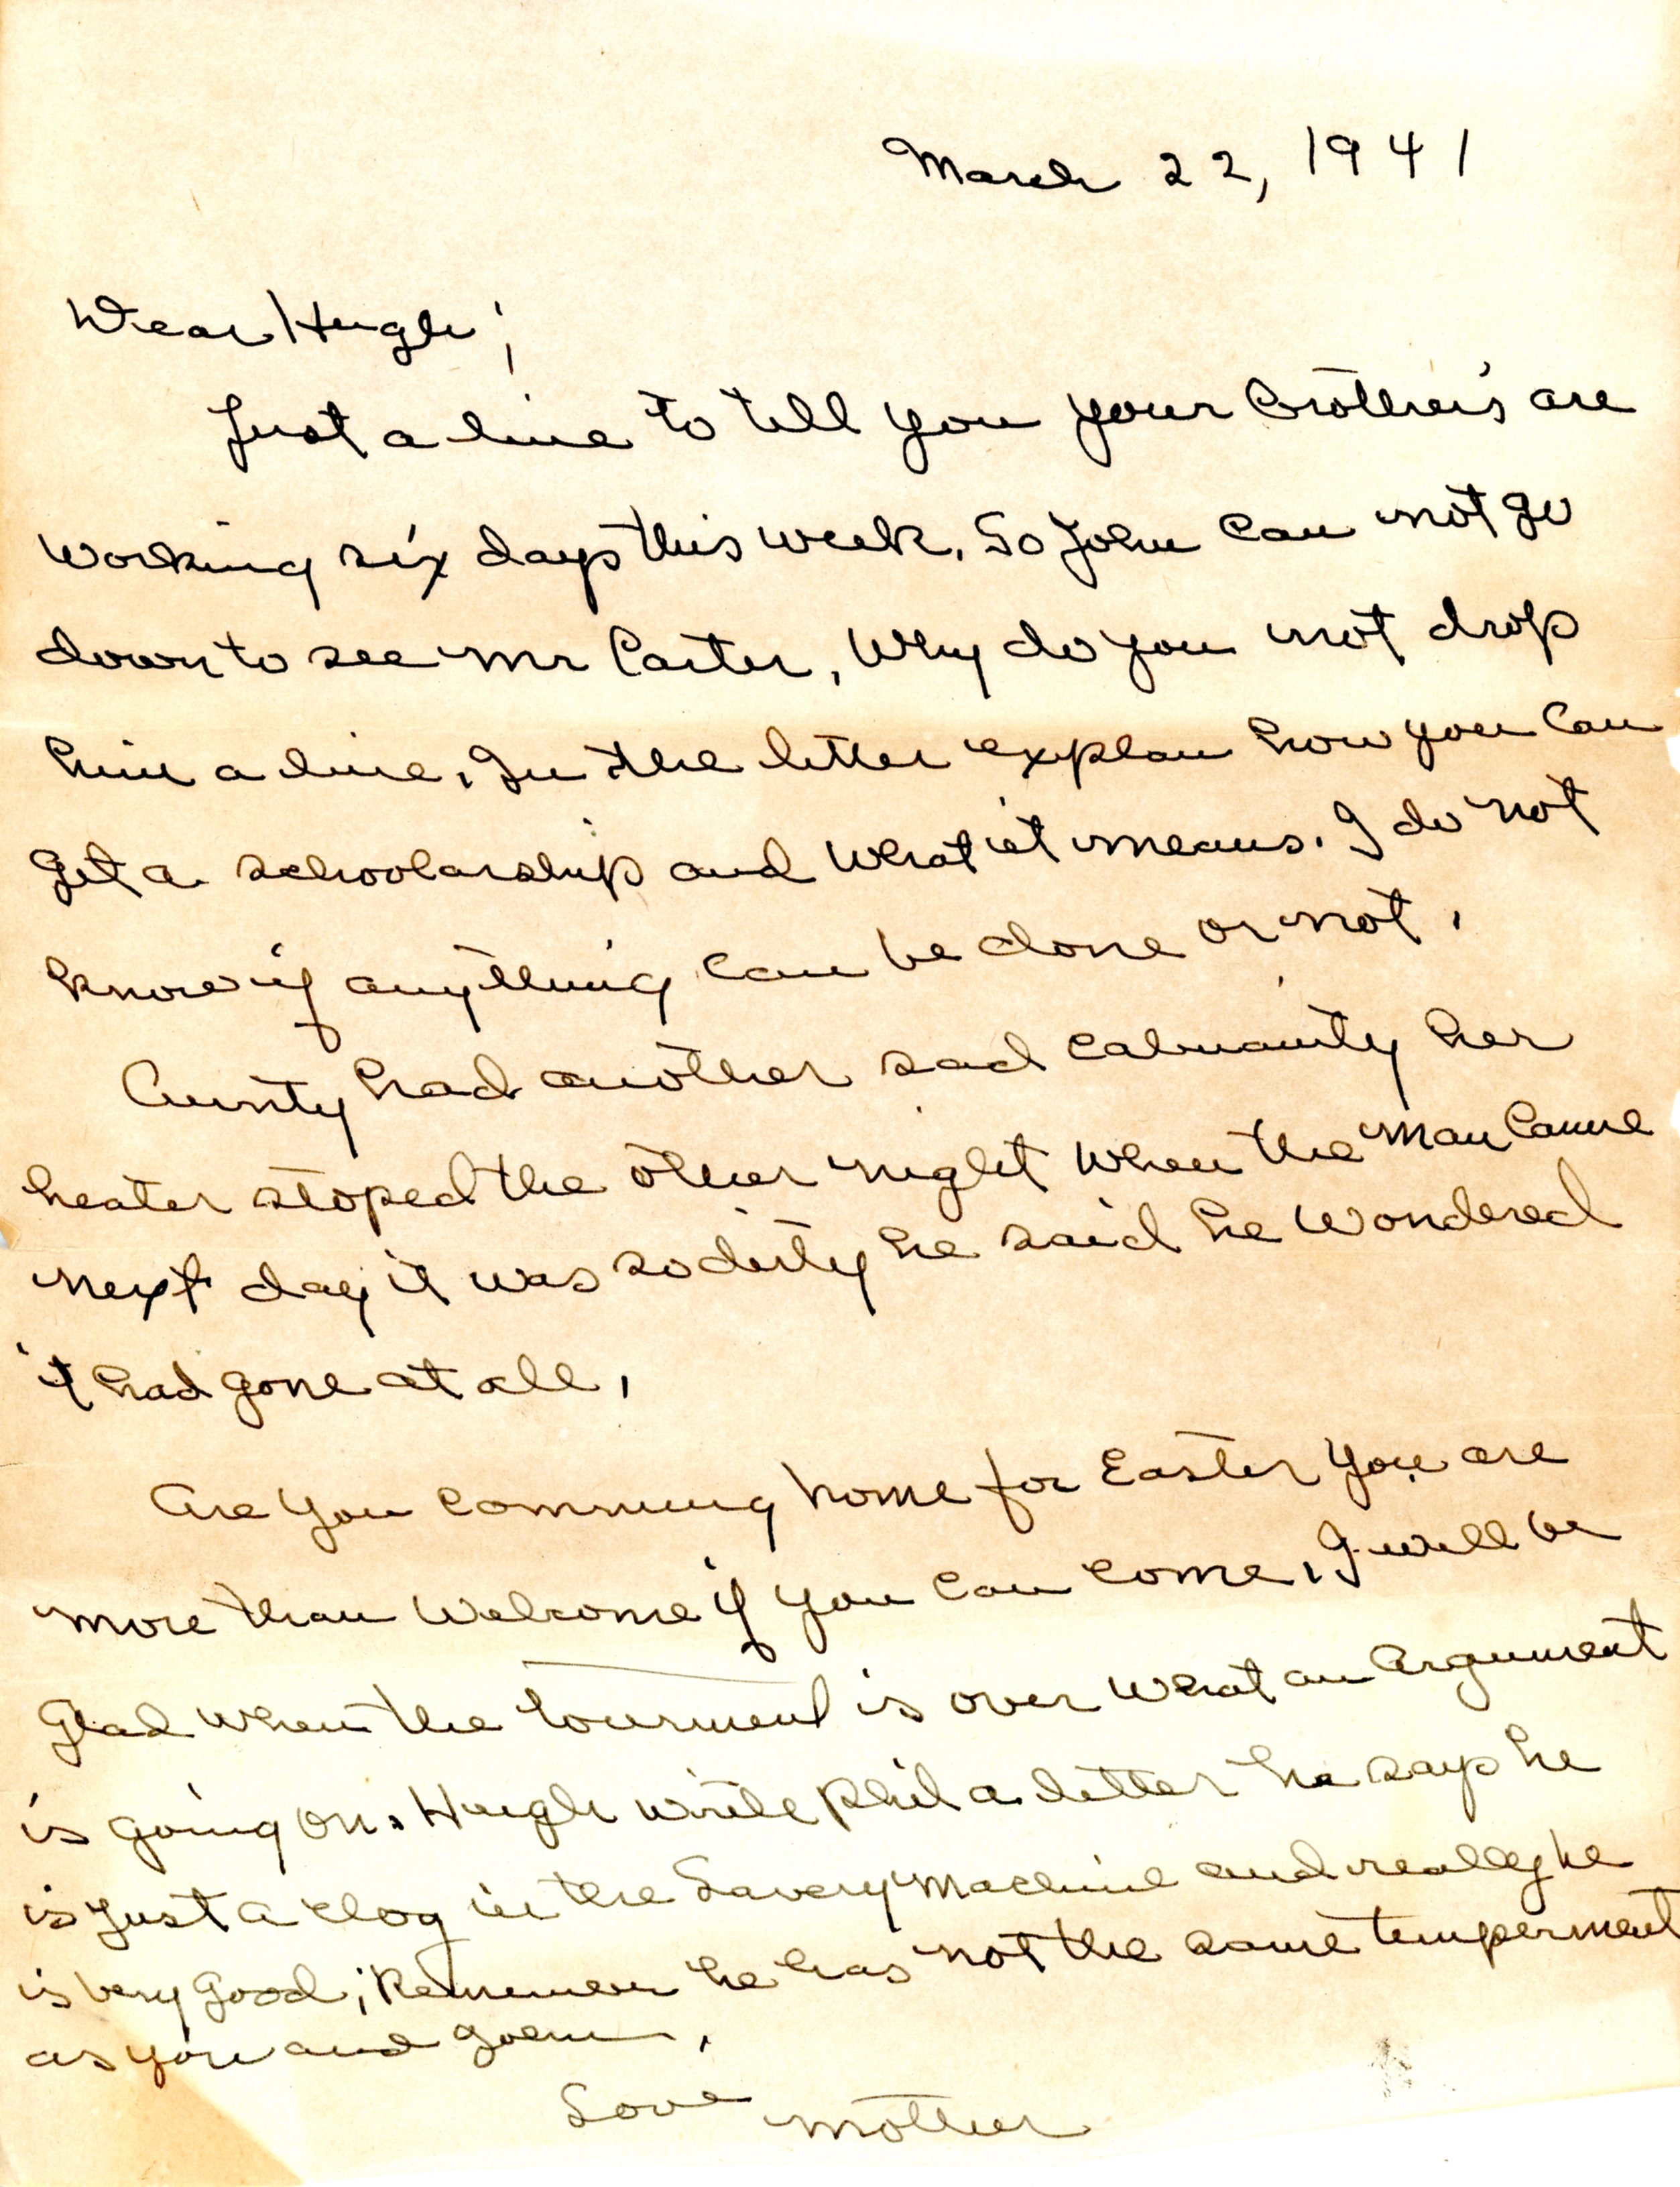 March 22, 1941
Dear Hugh;
Just a line to tell you your brother's are
working six days this week. So John can not go
down to see Mr Carter. Why do you not drop
him a line. In the letter explan how you can
get a schoolarship and what it means. I do not
know if anything can be done or not.
Aunty had another sad calmanity her
heater stoped the other night when the man came
next day it was so dirty he said he wondered
it had gone at all.
Are you comming home for Easter you are
more than welcome if you can come. I will be
glad when the tourment is over what an argument
is going on. Hugh write Phil a letter he says he
is just a clog in the Savery Machine and really he
is very good; Rememer he has not the same temperment
as you and John.
Love Mother